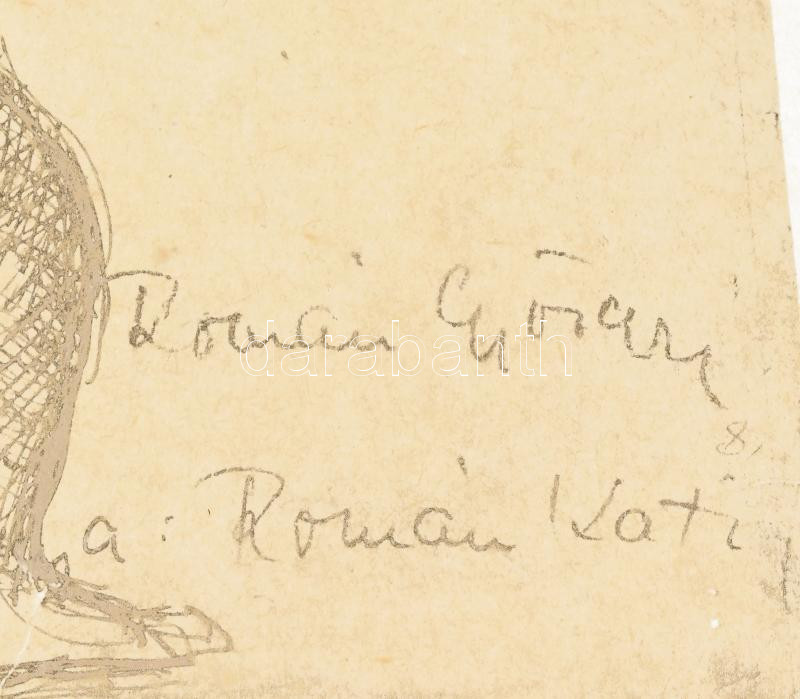 Román György
darabanth
8,
a: Román Kati